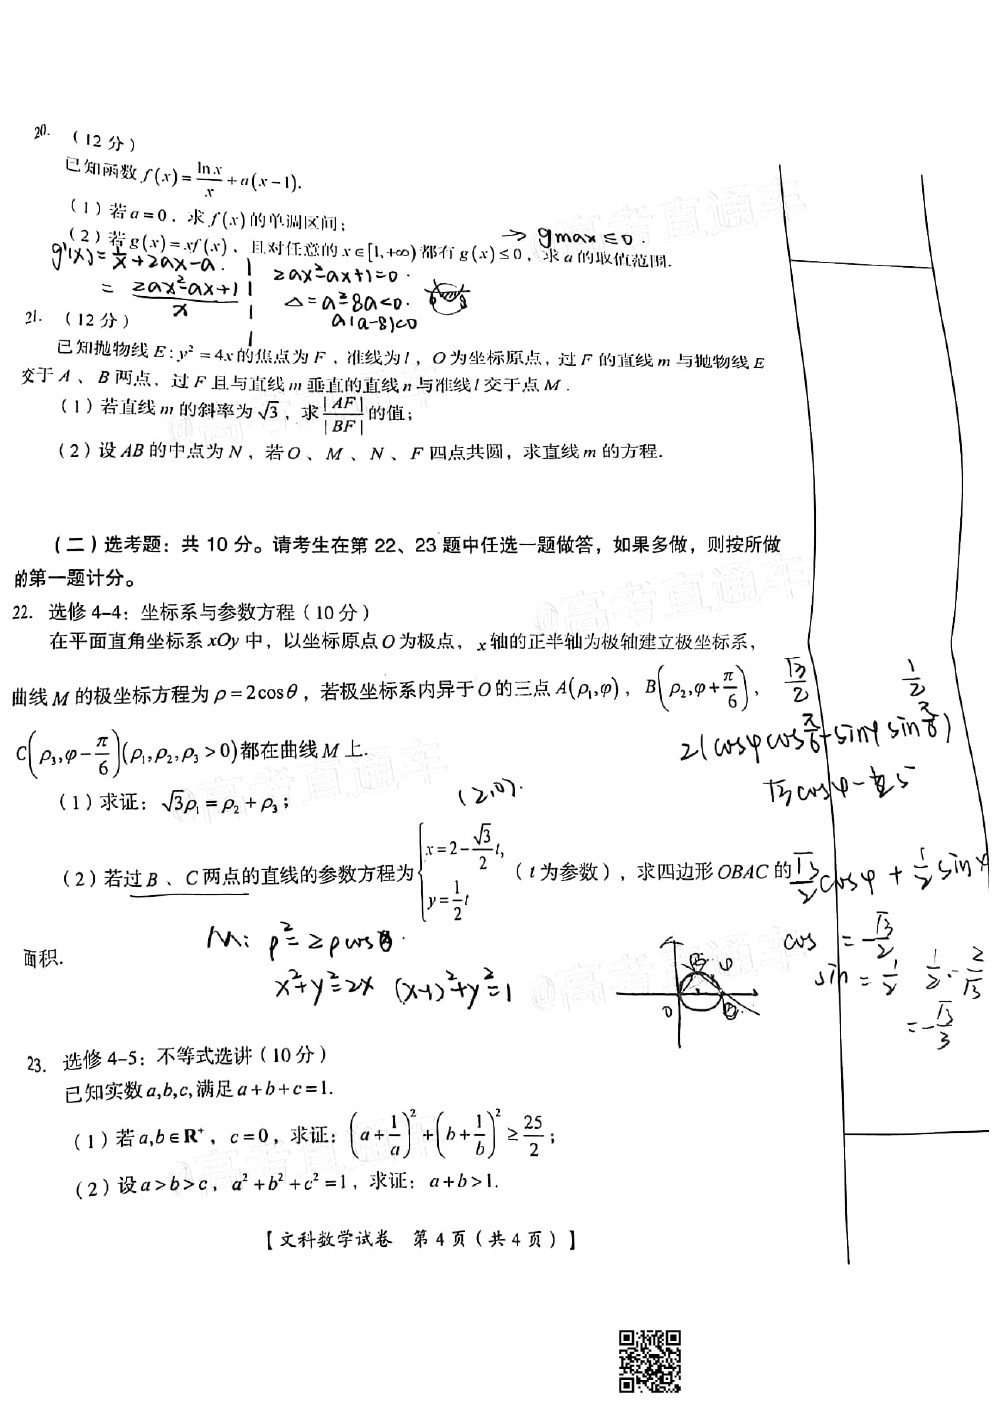 20. (12 分)
已知函数 f(x)=\frac{\ln x}{x}+a(x-1).
(1) 若 a=0，求 f(x) 的单调区间;
→ gmax ≤ 0.
(2) 若 g(x)=xf(x)，且对任意的 x∈[1,+∞) 都有 g(x)≤0，求 a 的取值范围.
g'(x)=\frac{1}{x}+2ax-a.
=\frac{2ax²-ax+1}{x}
2ax²-ax+1=0.
△=a²-8a<0.
a(a-8)<0
21. (12 分)
已知抛物线 E:y²=4x 的焦点为 F，准线为 l，O 为坐标原点，过 F 的直线 m 与抛物线 E
交于 A、B 两点，过 F 且与直线 m 垂直的直线 n 与准线 l 交于点 M.
(1) 若直线 m 的斜率为 √3，求 \frac{|AF|}{|BF|} 的值;
(2) 设 AB 的中点为 N，若 O、M、N、F 四点共圆，求直线 m 的方程.
(二) 选考题：共 10 分。请考生在第 22、23 题中任选一题做答，如果多做，则按所做
的第一题计分。
22. 选修 4-4：坐标系与参数方程 (10 分)
在平面直角坐标系 xOy 中，以坐标原点 O 为极点，x 轴的正半轴为极轴建立极坐标系，
曲线 M 的极坐标方程为 ρ=2cosθ，若极坐标系内异于 O 的三点 A(ρ₁,φ)，B(ρ₂,φ+\frac{π}{6})，
\frac{√3}{2} \frac{1}{2}
C(ρ₃,φ-\frac{π}{6})(ρ₁,ρ₂,ρ₃>0) 都在曲线 M 上.
2(cosφcos\frac{π}{6}-sinφsin\frac{π}{6})
(1) 求证：√3ρ₁=ρ₂+ρ₃;
(2,0).
√3cosφ-
(2) 若过 B、C 两点的直线的参数方程为 \begin{cases} x=2-\frac{√3}{2}t, \\ y=\frac{1}{2}t \end{cases} (t 为参数)，求四边形 OBAC 的
\frac{√3}{2}cosφ+\frac{1}{2}sinφ
面积.
M: ρ²=2ρcosθ.
x²+y²=2x (x-1)²+y²=1
φ
0
cos = \frac{√3}{2}
sin = \frac{1}{2}
\frac{1}{2}·-\frac{2}{√3}
=-\frac{√3}{3}
23. 选修 4-5：不等式选讲 (10 分)
已知实数 a,b,c,满足 a+b+c=1.
(1) 若 a,b∈R⁺，c=0，求证：(a+\frac{1}{a})²+(b+\frac{1}{b})²≥\frac{25}{2};
(2) 设 a>b>c，a²+b²+c²=1，求证：a+b>1.
【文科数学试卷 第 4 页 (共 4 页)】
@高考直通车
@高考直通车
@高考直通车
@高考直通车
@高考直通车
@高考直通车